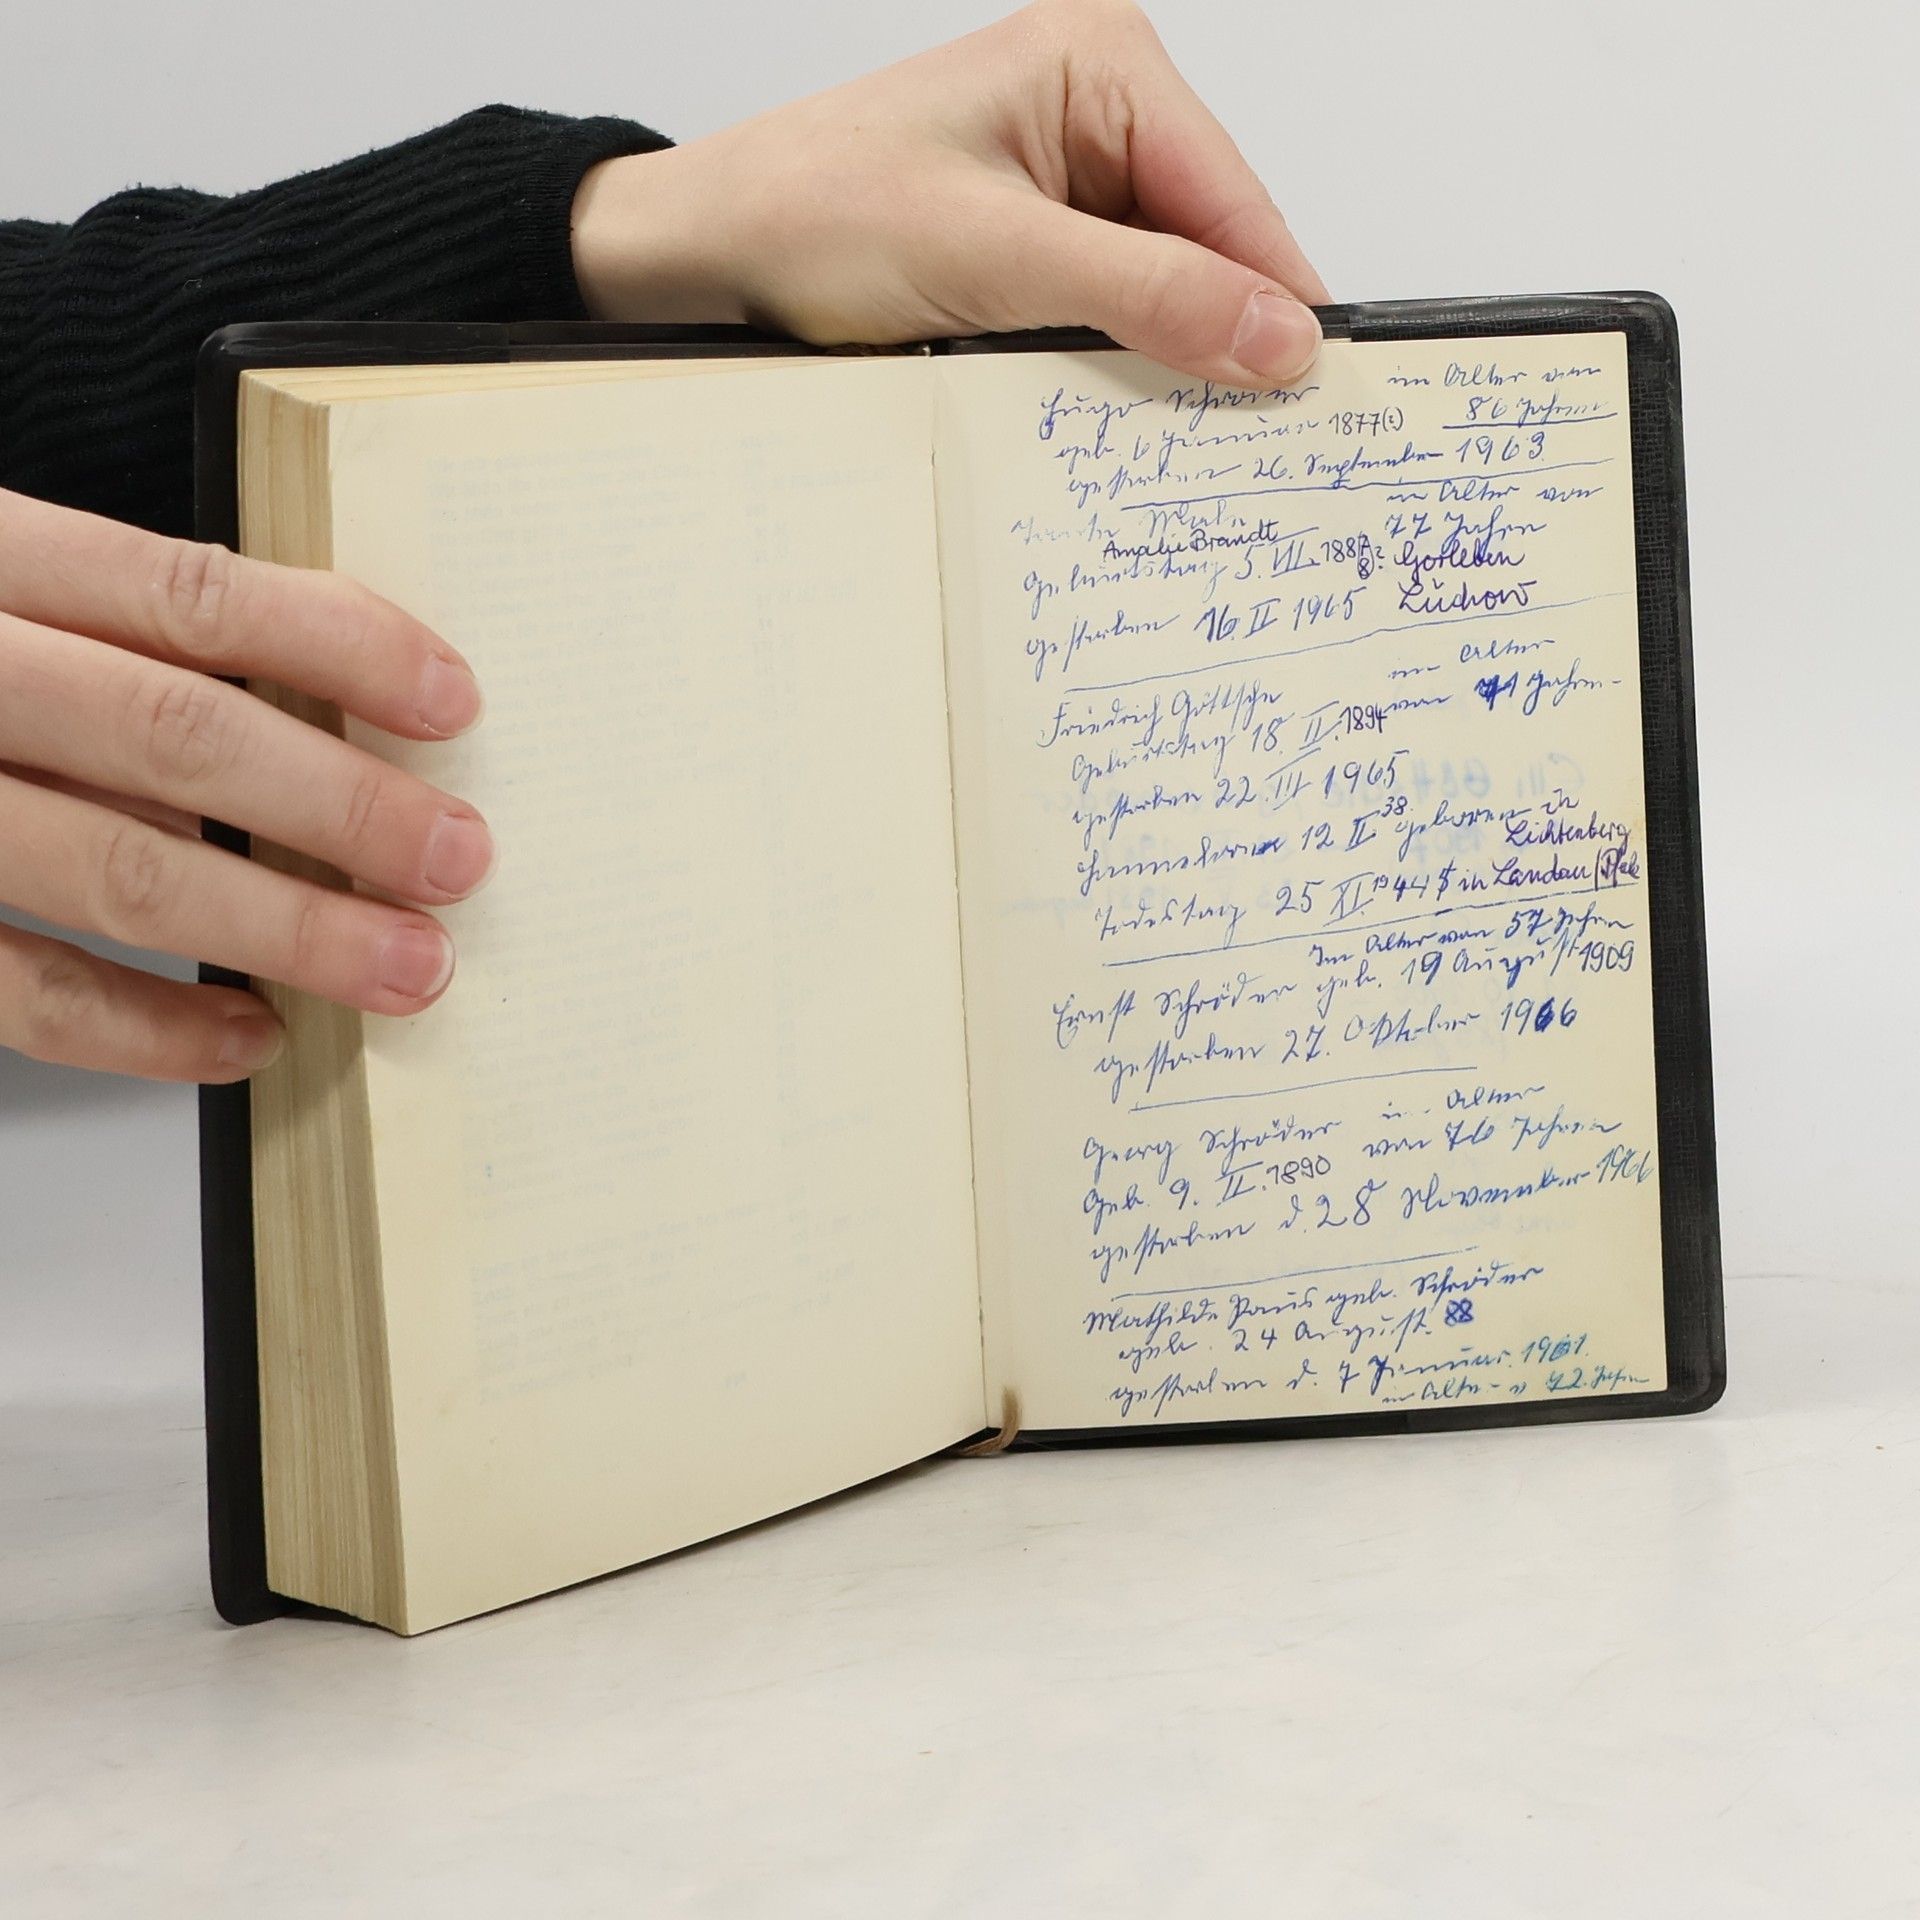 Hugo Schröder im Alter von
geb. 6 Januar 1877(?) 86 Jahren
gestorben 26. September 1963
Tante im Alter von
Amalie Brandt 77 Jahren
Geburtstag 5. VII. 1887 8? Gorleben
gestorben 16. II 1965 Lüchow
im Alter
Friedrich Göttsche von 71 Jahren
Geburtstag 18. II. 1894
gestorben 22. III 1965
Hannelore 12 II 38. geboren in
Lichtenberg
Todestag 25 XI. 1944 in Landau/Pfalz
Im Alter von 57 Jahren
Ernst Schröder geb. 19 August 1909
gestorben 27. Oktober 1966
Georg Schröder im Alter
von 76 Jahren
Geb. 9. II. 1890
gestorben d. 28 November 1966
Mathilde Paus geb. Schröder
geb. 24 August. 88
gestorben d. 7 Januar. 1961.
im Alter v 72. Jahren